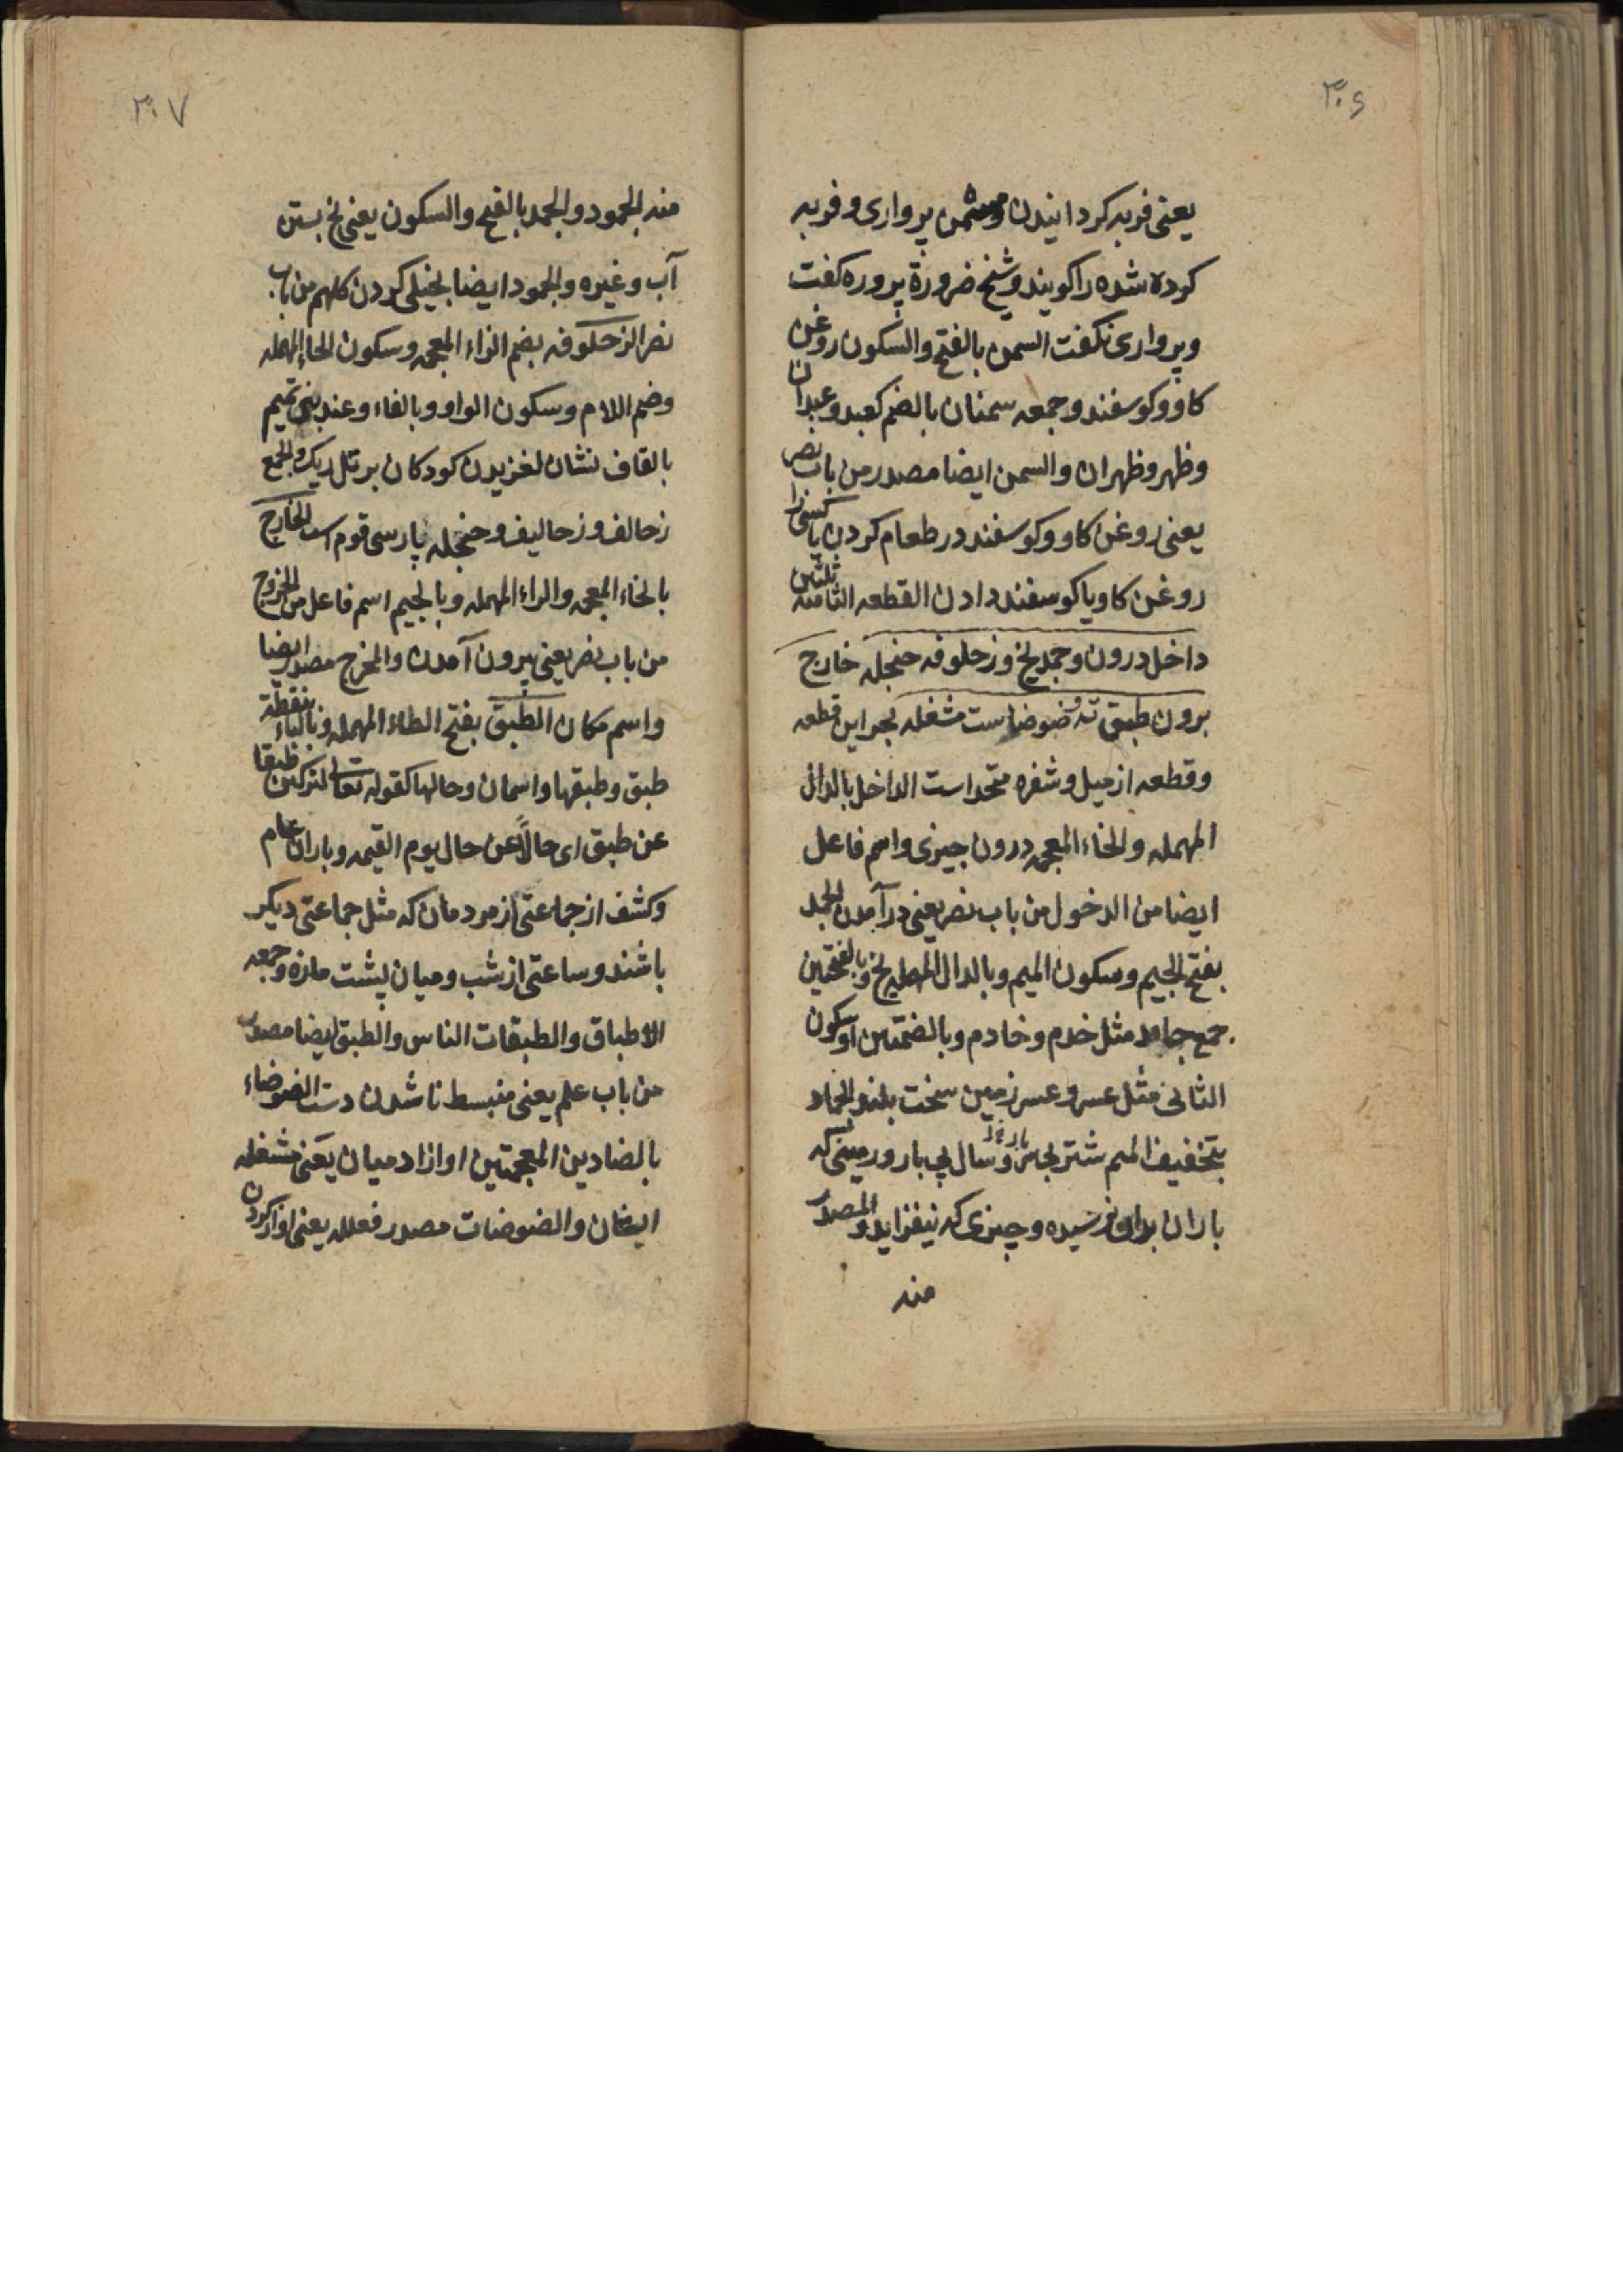 ۳۰۶
یعنی فربه کردانیدن ومسمن پرواری و فربه
کرده شده را کویند و شیخ ضرورة پروره کفت
و پرواری نکفت السمن بالفتح والسکون روغن
کاو و کوسفند و جمعه سمنان بالضم کعبد و عبدان
وظهر وظهران والسمن ایضا مصدر من باب نصر
یعنی روغن کاو و کوسفند در طعام کردن یا کسی را
روغن کاو یا کوسفند دادن القطعه الثامنه ثلثین
داخل درون و جمد یخ و زحلوفه حنجله خارج
برون طبق ته ضوضاست مشغله بحر این قطعه
وقطعه از میل و شفره متحد است الداخل بالدال
المهمله والخاء المعجمه درون چیزی واسم فاعل
ایضا من الدخول من باب نصر یعنی درآمدن الجمد
بفتح الجیم وسکون المیم وبالدال المهمله یخ وبالفتحتین
جمع جامد مثل خدم و خادم وبالضمتین او سکون
الثانی مثل عسر وعسر زمین سخت بلند الجماد
بتخفیف المیم شتر بی شیر وسال بی بار و زمینی که
باران بدان نرسیده و چیزی که نیفزاید والمصدر
منه
۳۰۷
منه الجمود والجمد بالفتح والسکون یعنی یخ بستن
آب وغیره والجمود ایضا بخیلی کردن کلهم من باب
نصر الزحلوفه بضم الزاء المعجمه وسکون الحاء المهمله
وضم اللام وسکون الواو وبالفاء وعند بنی تمیم
بالقاف نشان لغزیدن کودکان بر تل ریک والجمع
زحالف و زحالیف و حنجله پارسی قوم است الخارج
بالخاء المعجمه والراء المهمله وبالجیم اسم فاعل من الخروج
من باب نصر یعنی بیرون آمدن والمخرج مصدر ایضا
واسم مکان الطبق بفتح الطاء المهمله وبالباء بنقطة
طبق وطبقها واسمان وحالها کقوله تعالی لترکبن طبقا
عن طبق ای حالاً عن حال یوم القیمه وباران عام
وکشف از جماعتی از مردمان که مثل جماعتی دیکر
باشند وساعتی از شب ومیان پشت مازه وجمعه
الاطباق والطبقات الناس والطبق ایضا مصدر
من باب علم یعنی منبسط ناشدن دست الضوضاء
بالضادین المعجمتین اواز ادمیان یعنی مشغله
ایشان والضوضات مصدر فعلله یعنی اواز کردن